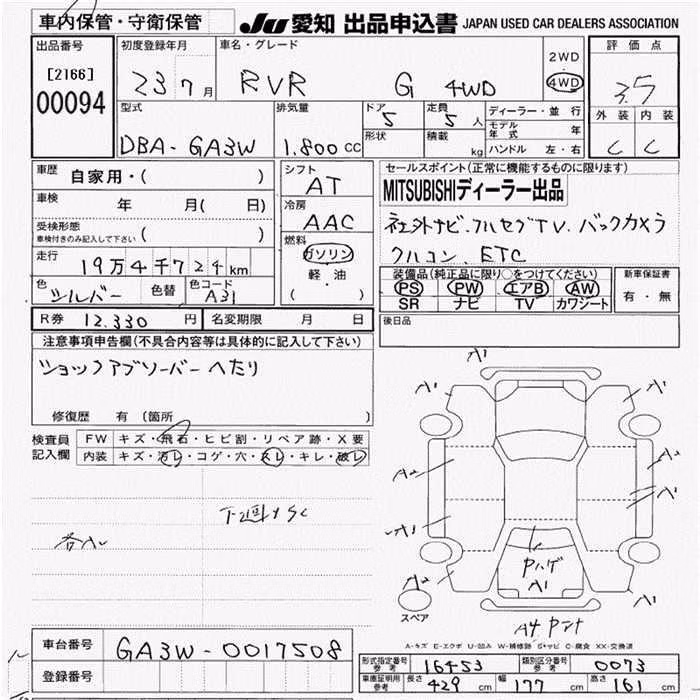 車内保管・守衛保管
JU 愛知 出品申込書 JAPAN USED CAR DEALERS ASSOCIATION
出品番号
[2166]
00094
初度登録年月
23 7月
車名・グレード
RVR G 4WD
2WD
4WD
評価点
3.5
外装 内装
C C
型式
DBA-GA3W
排気量
1.800 CC
ドア
5
形状
定員
5 人
積載
kg
ディーラー・並行
モデル年式 年
ハンドル 左・右
車歴
自家用・( )
車検
年 月( 日)
受検形態
車検付きのみ記入して下さい ( )
走行
19万4千724km
色
シルバー
色替
色コード
A31
シフト
AT
冷房
AAC
燃料
ガソリン
軽・油
( )
セールスポイント(正常に機能するものに限ります)
MITSUBISHIディーラー出品
社外ナビ.フルセグTV.バックカメラ
クルコン.ETC
装備品(純正品に限り○をつけてください)
PS PW エアB AW
SR ナビ TV カワシート
新車保証書
有・無
R券 12.330 円
名変期限 月 日
後日品
注意事項申告欄(不具合内容等は具体的に記入して下さい)
ショックアブソーバーへたり
修復歴 有 (箇所 )
検査員
記入欄
FW キズ・飛石・ヒビ割・リペア跡・X要
内装 キズ・汚レ・コゲ・穴・スレ・キレ・破レ
下廻りSC
A1
A1
A1
A2
A2
A1
A1
A2
A1
Pハゲ
A1
スペア
A4
A-キズ E-エクボ U-凹み W-補修跡 S-サビ C-腐食 XX-交換済
車台番号
GA3W-0017508
登録番号
形式指定番号
参考
16453
類別区分番号
参考
0073
車庫証明用
参考
長さ 429 cm
幅 177 cm
高さ 161 cm